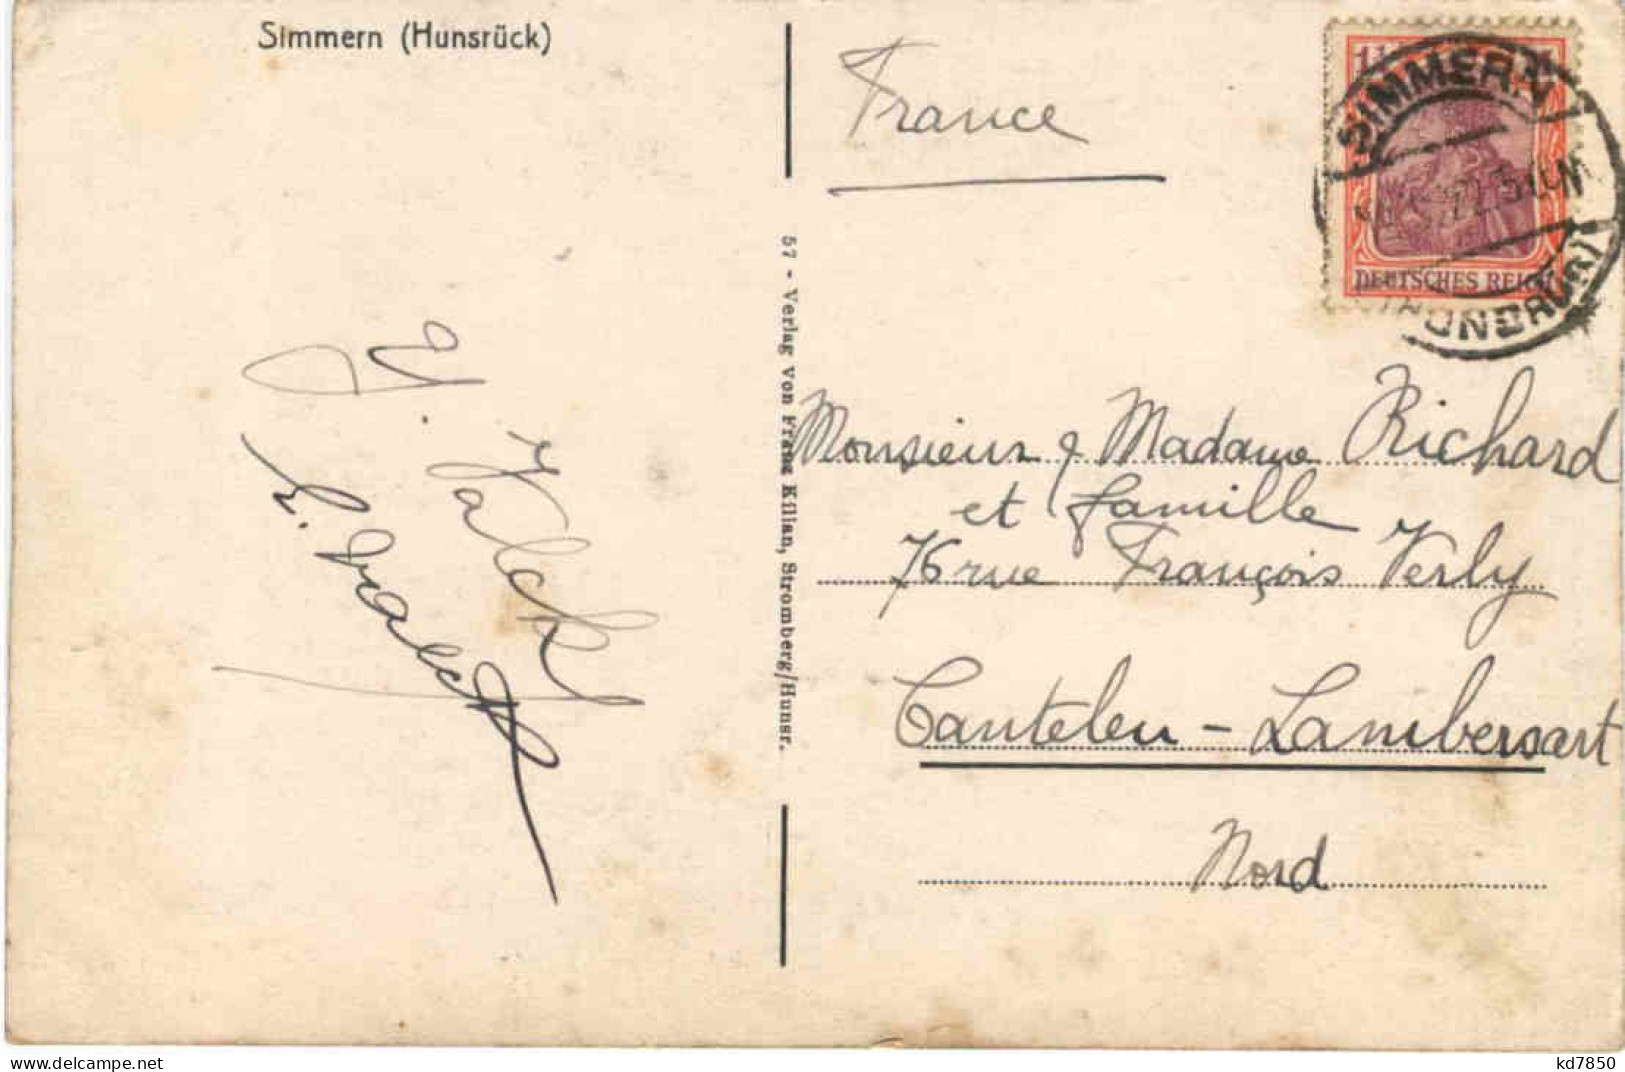 Simmern (Hunsrück)
France
SIMMERN
(HUNSRÜCK)
DEUTSCHES REICH
57 - Verlag von Franz Kilian, Stromberg/Hunsr.
Monsieur & Madame Richard
et famille
76 rue François Verly
Canteleu - Lambersart
Nord
www.delcampe.net
kd7850